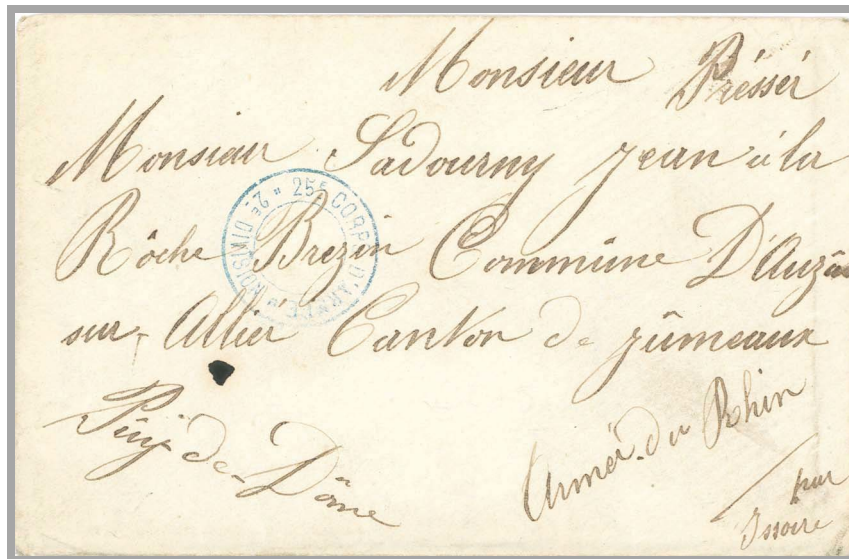 Monsieur Préssér
Monsieur Sadourny Jean à la
Rôche Brezin Commune D'Auzat
sur-Allier Canton de Jûmeaux
Pûy-de-Dôme
Armée du Rhin
par
Issoire
2E DIVISION " 25E CORPS D'ARMÉE "